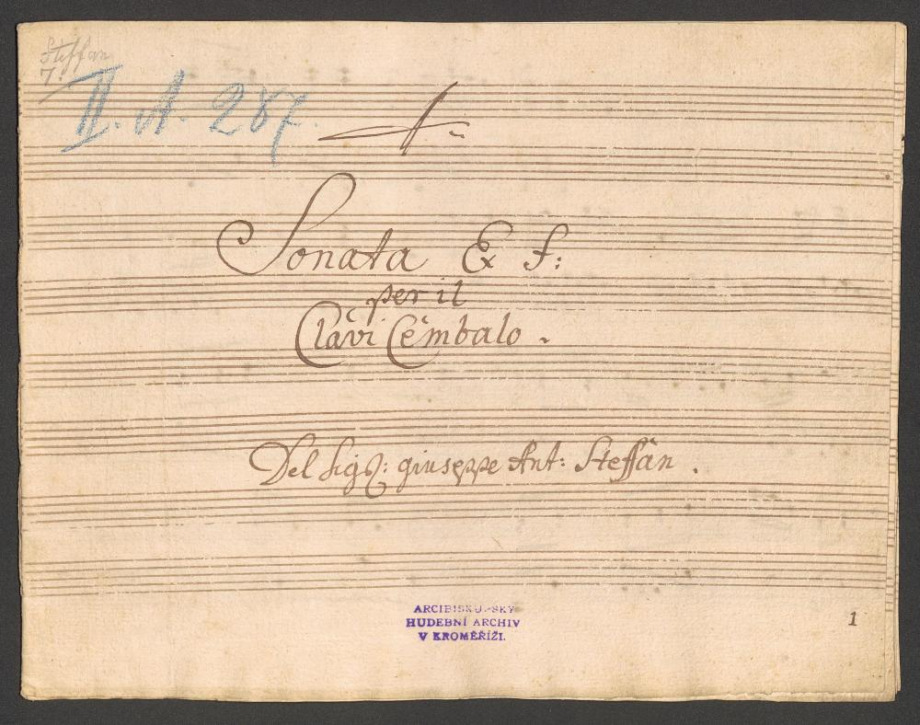 Steffan
7.
II. A. 287.
Sonata Ex F:
per il
Clavi Cembalo.
Del Sigre: giuseppe Ant: Steffan.
ARCIBISKUPSKÝ
HUDEBNÍ ARCHIV
V KROMĚŘÍŽI.
1